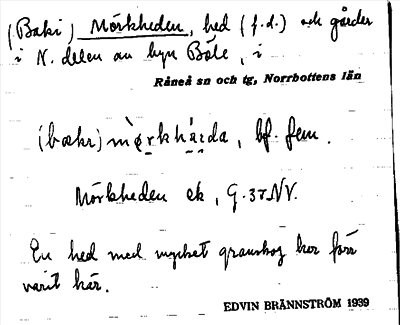 (Baki) Mörkheden, hed (f.d.) och gårder
i N. delen av byn Böle, i
Råneå sn och tg, Norrbottens län
(bækr) mö̀rkhä̀rda, bf. fem.
Mörkheden ek, G. 37 NV.
En hed med mycket granskog har förr
varit här.
EDVIN BRÄNNSTRÖM 1939